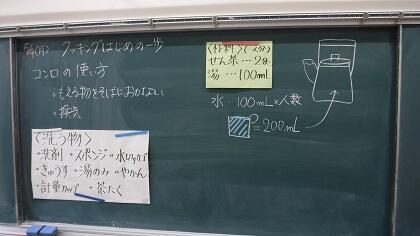 5/9(月) クッキングはじめの一歩
コンロの使い方
・もえる物をそばにおかない
・換気
〈洗う物〉
・洗剤 ・スポンジ ・水切りカゴ
・きゅうす ・湯のみ ・やかん
・計量カップ ・茶たく
〈材料〉(一人分)
せん茶…2g
湯…100mL
水 100mL×人数
=200mL